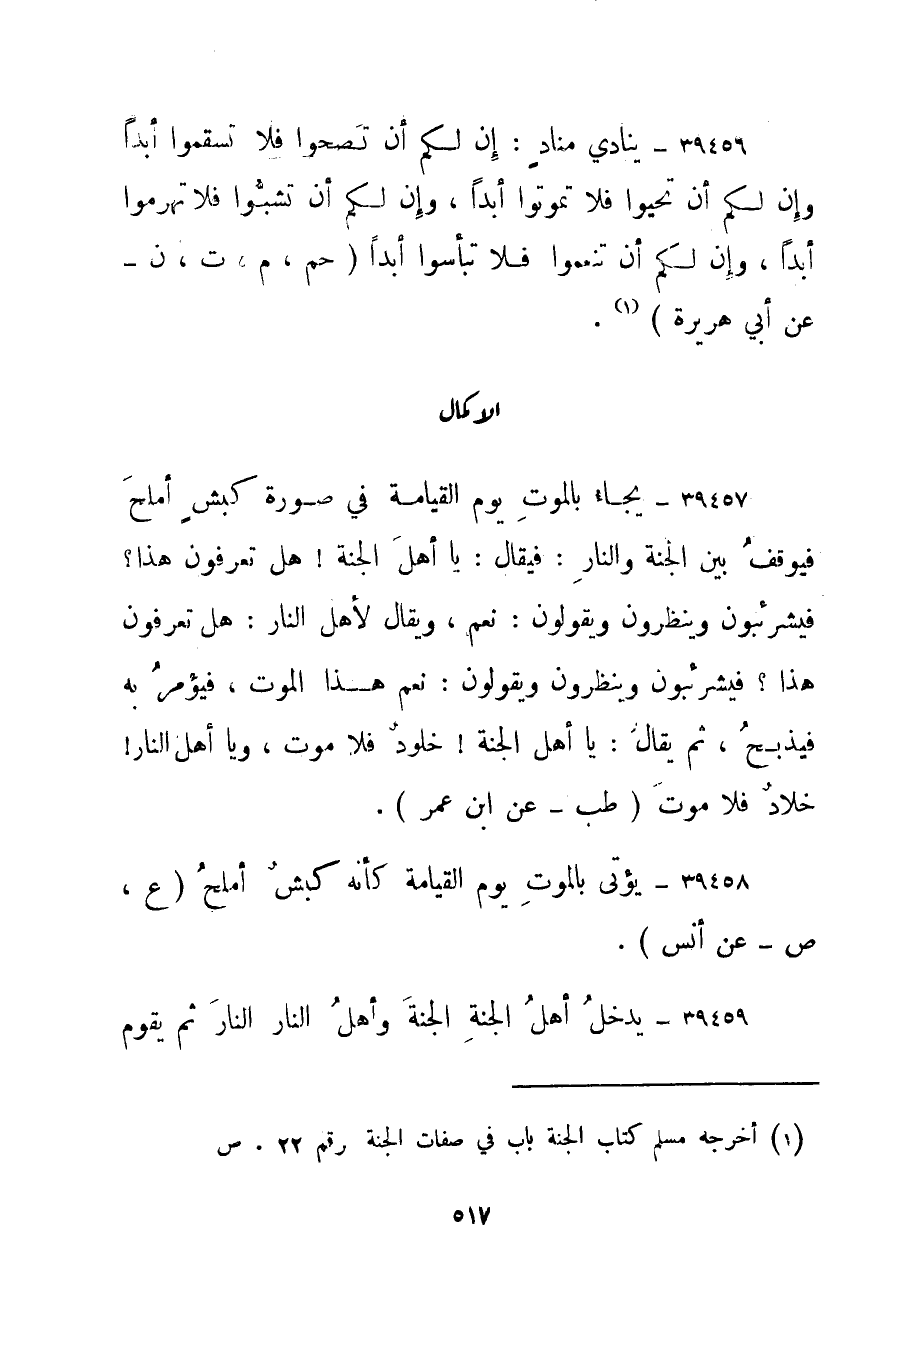 ٣٩٤٥٦ ـ ينادي منادٍ : إِن لـكم أن تَصحوا فلا تسقموا أبداً
وإِن لـكم أن تحيوا فلا تموتوا أبداً ، وإِن لـكم أن تشبُّوا فلا تهرموا
أبداً ، وإِن لـكم أن تنعموا فـلا تبأسوا أبداً ( حم ، م ، ت ، ن ـ
عن أبي هريرة ) (١) .
الاكمال
٣٩٤٥٧ ـ يجـاء بالموتِ يوم القيامـة في صـورة كبشٍ أملحَ
فيوقفُ بين الجنة والنارِ : فيقال : يا أهلَ الجنة ! هل تعرفون هذا ؟
فيشرئبون وينظرون ويقولون : نعم ، ويقال لأهل النار : هل تعرفون
هذا ؟ فيشرئبون وينظرون ويقولون : نعم هـذا الموت ، فيؤمرُ به
فيذبـحُ ، ثم يقالُ : يا أهل الجنة ! خلودٌ فلا موت ، ويا أهل النار !
خلادٌ فلا موتَ ( طب ـ عن ابن عمر ) .
٣٩٤٥٨ ـ يؤتى بالموتِ يوم القيامة كأنه كبشٌ أملحُ ( ع ،
ص ـ عن أنس ) .
٣٩٤٥٩ ـ يدخلُ أهلُ الجنةِ الجنةَ وأهلُ النار النارَ ثم يقوم
(١) أخرجه مسلم كتاب الجنة باب في صفات الجنة رقم ٢٢ . ص
٥١٧